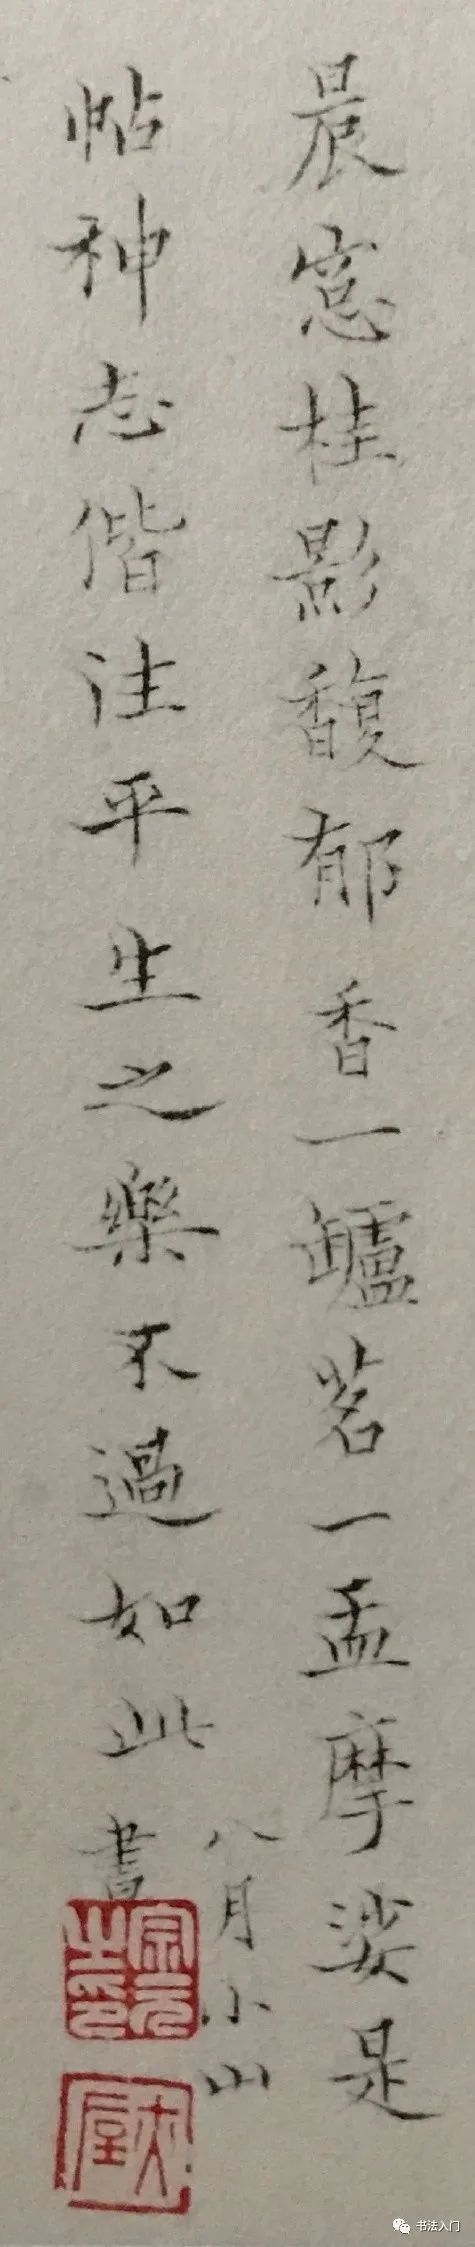 晨窓桂影馥郁香一罏茗一盂摩娑是
帖神志偕注平生之樂不過如此
八月小山
書
宗元之印
书法入门